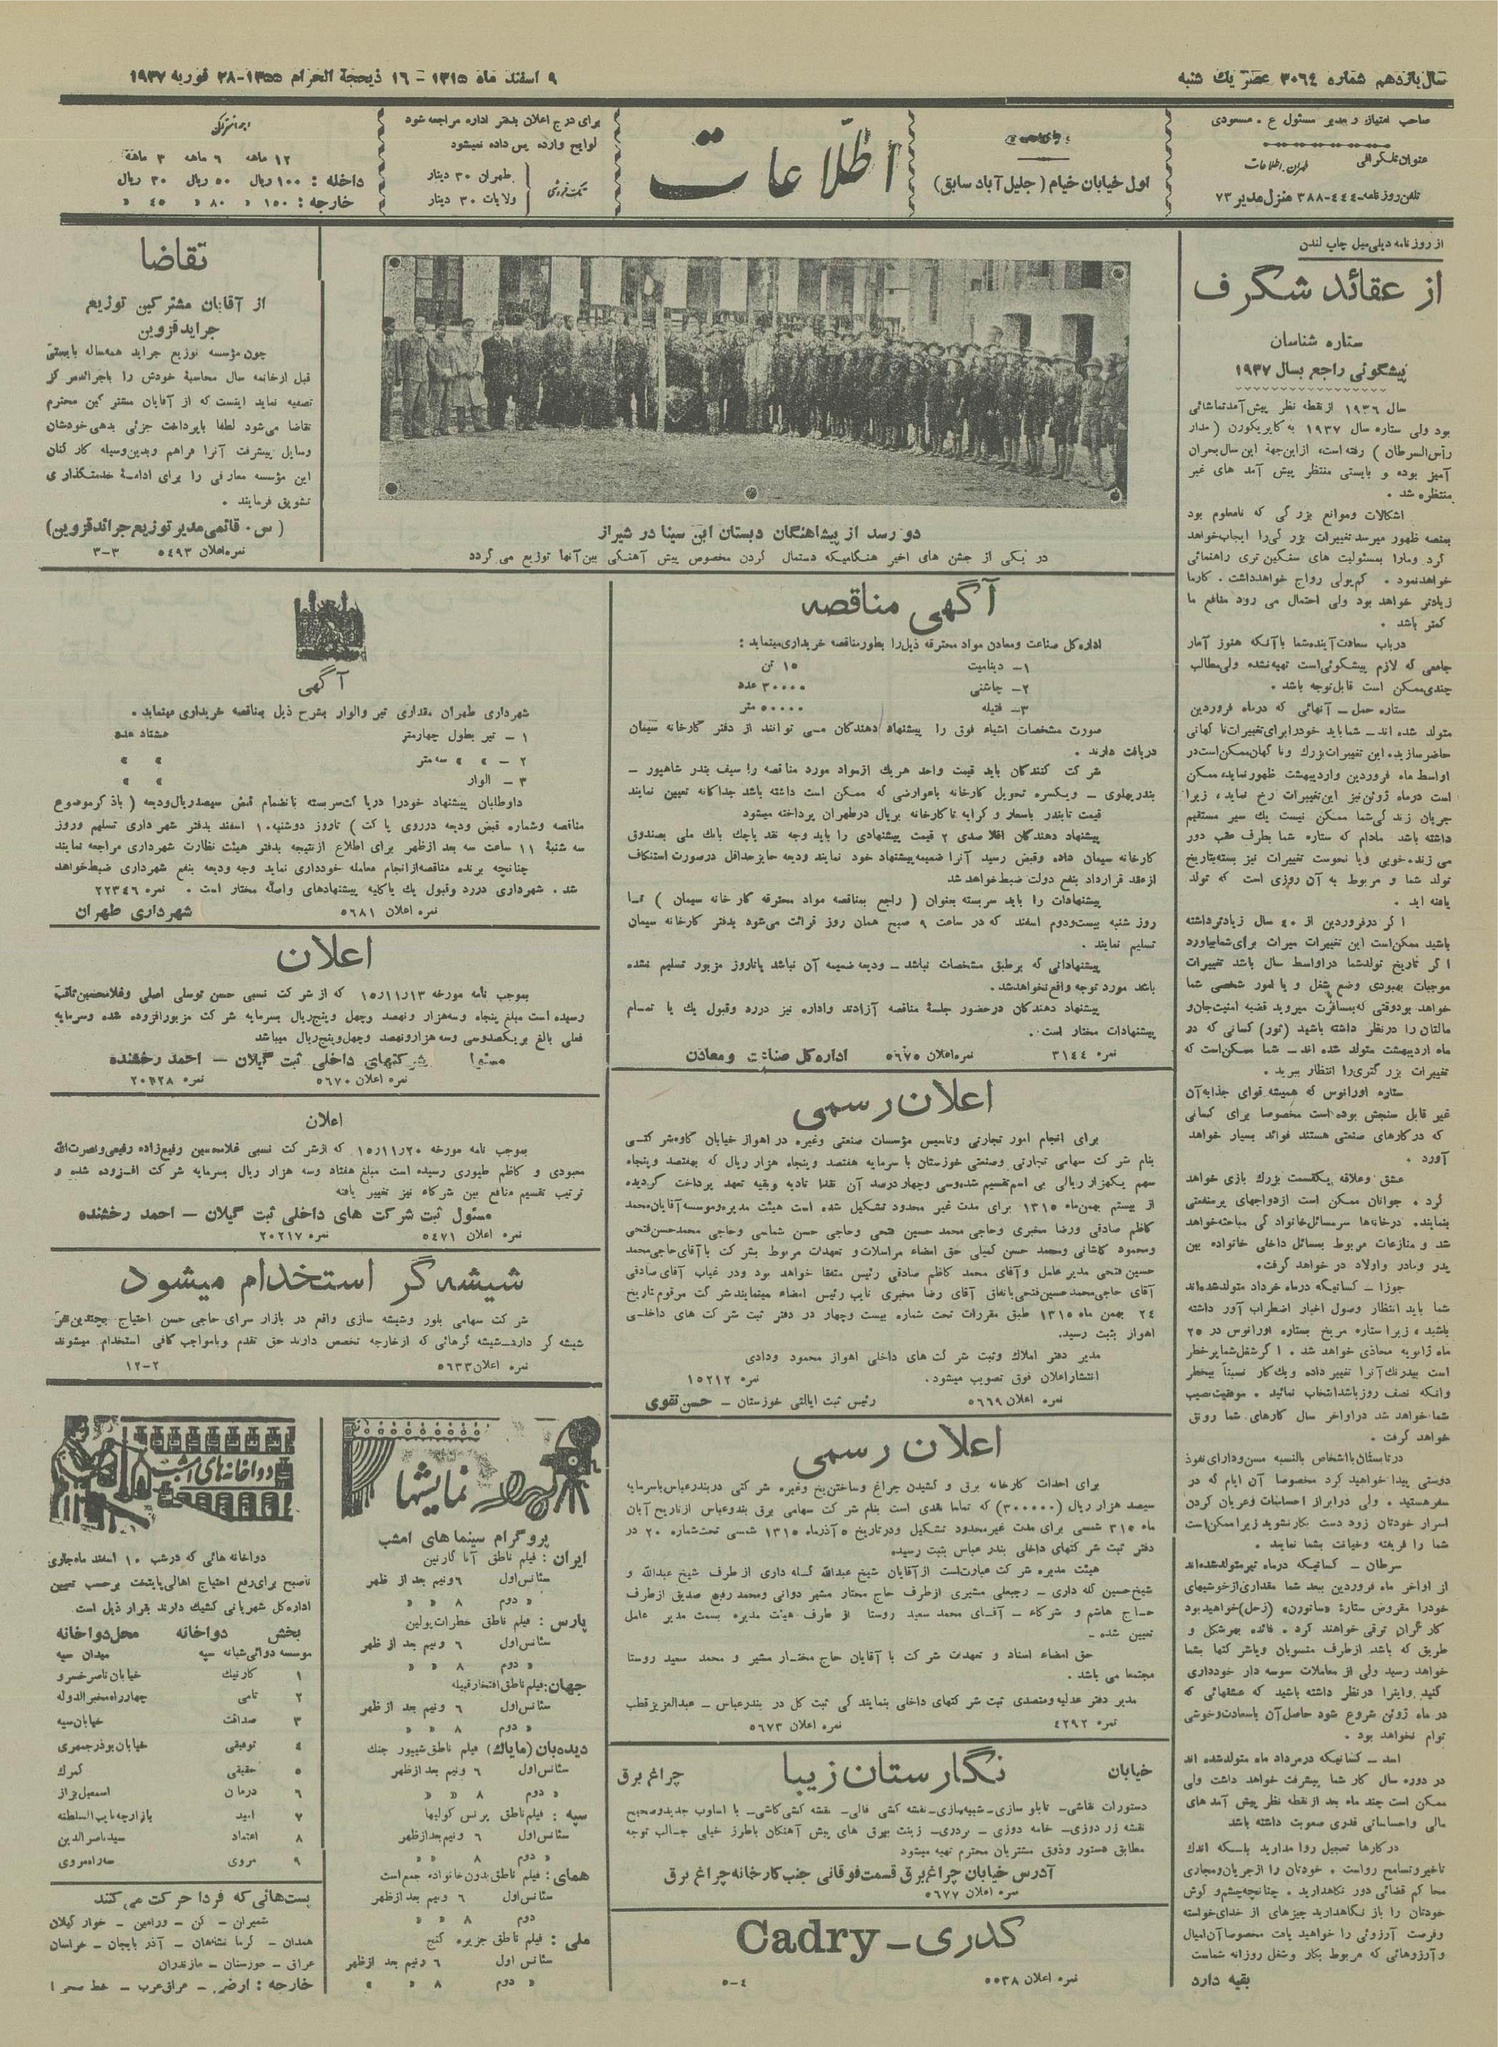 سال یازدهم شماره ۳۰۶۴ عصر یك شنبه
۹ اسفند ماه ۱۳۱۵ - ۱۶ ذیحجة الحرام ۱۳۵۵-۲۸ فوریه ۱۹۳۷
صاحب امتیاز و مدیر مسئول ع . مسعودی
عنوان تلگرافی
طهران . اطلاعات
تلفن روزنامه-۴۴۴-۳۸۸ منزل مدیر ۷۳
اول خیابان خیام ( جلیل آباد سابق )
اطلاعات
برای درج اعلان بدفتر اداره مراجعه شود
لوایح وارده پس داده نمیشود
تکفروشی
طهران ۳۰ دینار
ولایات ۳۰ دینار
وجه اشتراک
۱۲ ماهه ۶ ماهه ۳ ماهه
داخله : ۱۰۰ ریال ۵۰ ریال ۳۰ ریال
خارجه : ۱۵۰ « ۸۰ « ۴۵ «
از روزنامه دیلی میل چاپ لندن
از عقائد شگرف
ستاره شناسان
پیشگوئی راجع بسال ۱۹۳۷
سال ۱۹۳۶ از نقطه نظر پیش آمد تماشائی
بود ولی ستاره سال ۱۹۳۷ به کاپریکورن ( مدار
رأس السرطان ) رفته است، از این جهة این سال بحران
آمیز بوده و بایستی منتظر پیش آمد های غیر
منتظره شد .
اشکالات و موانع بزرگی که نامعلوم بود
بمنصه ظهور میرسد تغییرات بزرگی را ایجاب خواهد
کرد و مارا بمسئولیت های سنگین تری راهنمائی
خواهد نمود . کم پولی رواج خواهد داشت . کارما
زیادتر خواهد بود ولی احتمال می رود منافع ما
کمتر باشد .
درباب سعادت آینده شما با آنکه هنوز آمار
جامعی که لازم پیشگوئی است تهیه نشده ولی مطالب
چندی ممکن است قابل توجه باشد .
ستاره حمل - آنهائی که در ماه فروردین
متولد شده اند - شما باید خودرا برای تغییرات ناگهانی
حاضر سازید. این تغییرات بزرگ و ناگهان ممکن است در
اواسط ماه فروردین و اردیبهشت ظهور نماید، ممکن
است در ماه ژوئن نیز این تغییرات رخ نماید، زیرا
جریان زندگی شما ممکن نیست یك سیر مستقیم
داشته باشد مادام که ستاره شما بطرف عقب دور
می زند. خوبی و یا نحوست تغییرات نیز بسته بتاریخ
تولد شما و مربوط به آن روزی است که تولد
یافته اید .
اگر در فروردین از ۴۰ سال زیادتر داشته
باشید ممکن است این تغییرات میراث برای شما بیاورد
اگر تاریخ تولد شما در اواسط سال باشد تغییرات
موجبات بهبودی وضع شغل و یا امور شخصی شما
خواهد بود وقتی که بمسافرت میروید قضیه امنیت جان و
مالتان را در نظر داشته باشید (ثور) کسانی که در
ماه اردیبهشت متولد شده اند - شما ممکن است که
تغییرات بزرگتری را انتظار ببرید .
ستاره اورانوس که همیشه قوای جذابه آن
غیر قابل سنجش بوده است مخصوصا برای کسانی
که در کارهای صنعتی هستند فوائد بسیار خواهد
آورد .
عشق و علاقه یکقسمت بزرگ بازی خواهد
کرد . جوانان ممکن است ازدواجهای پر منفعتی
بنمایند. در خانه ها سر مسائل خانواد گی مباحثه خواهد
شد و منازعات مربوط بمسائل داخلی خانواده بین
پدر و مادر و اولاد در خواهد گرفت.
جوزا - کسانیکه در ماه خرداد متولد شده اند
شما باید انتظار وصول اخبار اضطراب آور داشته
باشید ، زیرا ستاره مریخ بستاره اورانوس در ۲۵
ماه ژانویه محاذی خواهد شد . اگر شغل شما پر خطر
است بیدرنگ آنرا تغییر داده و یك کار نسبتاً بیخطر
و آنکه نصف روز باشد انتخاب نمائید . موفقیت نصیب
شما خواهد شد در اواخر سال کارهای شما رونق
خواهد گرفت .
در تابستان با اشخاص بالنسبه مسن و دارای نفوذ
دوستی پیدا خواهید کرد مخصوصا آن ایام که در
سفر هستید . ولی در ابراز احساسات و عریان کردن
اسرار خودتان زود دست بکار نشوید زیرا ممکن است
شما را فریفته و خیانت بشما نمایند .
سرطان - کسانیکه در ماه تیر متولد شده اند
از اواخر ماه فروردین ببعد شما مقداری از خوشیهای
خودرا مقروض ستارهٔ «ساتورن» (زحل) خواهید بود
کارگران ترقی خواهند کرد . فائده بهر شکل و
طریق که باشد از طرف منسوبان و یا شرکتها بشما
خواهد رسید ولی از معاملات سوسه دار خودداری
کنید و اینرا در نظر داشته باشید که عشقهائی که
در ماه ژوئن شروع شود حاصل آن با سعادت و خوشی
توام نخواهد بود .
اسد - کسانیکه در مرداد ماه متولد شده اند
در دوره سال کار شما پیشرفت خواهد داشت ولی
ممکن است چند ماه بعد از نقطه نظر پیش آمد های
مالی و احساساتی قدری صعوبت داشته باشد
در کارها تعجیل روا مدارید بلکه اندك
تاخیر و تسامح رواست . خودتان را از جریان و مجاری
محاکم قضائی دور نگاهدارید . چنانچه چشم و گوش
خودتان را باز نگاهدارید چیزهای از خدای خواسته
و فرصت آرزوئی را خواهید یافت مخصوصا آن امیال
و آرزوهائی که مربوط بکار و شغل روزانه شماست
بقیه دارد
دو رسد از پیشاهنگان دبستان ابن سینا در شیراز
در یکی از جشن های اخیر هنگامیکه دستمال گردن مخصوص پیش آهنگی بین آنها توزیع می گردد
آگهی مناقصه
اداره کل صناعت و معادن مواد محترقه ذیل را بطور مناقصه خریداری مینماید :
۱- دینامیت ۱۵ تن
۲- چاشنی ۳۰۰۰۰ عدد
۳- فتیله ۵۰۰۰۰ متر
صورت مشخصات اشیاء فوق را پیشنهاد دهندگان می توانند از دفتر کارخانه سیمان
دریافت دارند .
شرکت کنندگان باید قیمت واحد هریك از مواد مورد مناقصه را سیف بندر شاهپور -
بندر پهلوی - و یکسره تحویل کارخانه با عوارضی که ممکن است داشته باشد جداگانه تعیین نمایند
قیمت تا بندر باسعار و کرایه تا کارخانه بریال در طهران پرداخته میشود
پیشنهاد دهندگان اقلا صدی ۲ قیمت پیشنهادی را باید وجه نقد یا چك بانك ملی بصندوق
کارخانه سیمان داده و قبض رسید آنرا ضمیمه پیشنهاد خود نمایند ودیعه حایز حداقل در صورت استنکاف
از عقد قرارداد بنفع دولت ضبط خواهد شد
پیشنهادات را باید سربسته بعنوان ( راجع بمناقصه مواد محترقه کارخانه سیمان ) تا
روز شنبه بیست و دوم اسفند که در ساعت ۹ صبح همان روز قرائت می شود بدفتر کارخانه سیمان
تسلیم نمایند .
پیشنهاداتی که بر طبق مشخصات نباشد - ودیعه ضمیمه آن نباشد یا تا روز مزبور تسلیم نشده
باشد مورد توجه واقع نخواهد شد.
پیشنهاد دهندگان در حضور جلسهٔ مناقصه آزادند و اداره نیز در رد و قبول یك یا تمام
پیشنهادات مختار است .
نمره ۳۱۴۴ نمره اعلان ۵۶۷۵ اداره کل صناعت و معادن
اعلان رسمی
برای انجام امور تجارتی و تاسیس مؤسسات صنعتی و غیره در اهواز خیابان کاوه شرکتی
بنام شرکت سهامی تجارتی و صنعتی خوزستان با سرمایه هفتصد و پنجاه هزار ریال که بهفتصد و پنجاه
سهم یکهزار ریالی بی اسم تقسیم شده و سی و چهار درصد آن نقدا تادیه و بقیه تعهد پرداخت گردیده
از بیستم بهمن ماه ۱۳۱۵ برای مدت غیر محدود تشکیل شده است هیئت مدیره و موسسه آقایان محمد
کاظم صادقی و رضا مخبری و حاجی محمد حسین فتحی و حاجی حسن شماسی و حاجی محمد حسن فتحی
و محمود کاشانی و محمد حسن کمپلی حق امضاء مراسلات و تعهدات مربوط بشرکت با آقای حاجی محمد
حسین فتحی مدیر عامل و آقای محمد کاظم صادقی رئیس متفقا خواهد بود و در غیاب آقای صادقی
آقای حاجی محمد حسین فتحی باتفاق آقای رضا مخبری نایب رئیس امضاء مینمایند شرکت مرقوم تاریخ
۲۴ بهمن ماه ۱۳۱۵ طبق مقررات تحت شماره بیست و چهار در دفتر ثبت شرکت های داخلی
اهواز بثبت رسید.
مدیر دفتر املاك و ثبت شرکت های داخلی اهواز محمود ودادی
انتشار اعلان فوق تصویب میشود. نمره ۱۵۲۱۲
نمره اعلان ۵۶۶۹ رئیس ثبت ایالتی خوزستان - حسن تقوی
اعلان رسمی
برای احداث کارخانه برق و کشیدن چراغ و ساختن یخ و غیره شرکتی در بندرعباس با سرمایه
سیصد هزار ریال (۳۰۰۰۰۰) که تماما نقدی است بنام شرکت سهامی برق بندرعباس از تاریخ آبان
ماه ۳۱۵ شمسی برای مدت غیر محدود تشکیل و در تاریخ ۵ آذرماه ۱۳۱۵ شمسی تحت شماره ۲۰ در
دفتر ثبت شرکتهای داخلی بندر عباس بثبت رسیده.
هیئت مدیره شرکت عبارتست از آقایان شیخ عبدالله گله داری از طرف شیخ عبدالله و
شیخ حسین گله داری - رجبعلی مشیری از طرف حاج مختار مشیر دوانی و محمد رفیع صدیق از طرف
حاج هاشم و شرکاء - آقای محمد سعید روستا از طرف هیئت مدیره بسمت مدیر عامل
تعیین شده -
حق امضاء اسناد و تعهدات شرکت با آقایان حاج مختار مشیر و محمد سعید روستا
مجتمعا می باشد .
مدیر دفتر عدلیه و متصدی ثبت شرکتهای داخلی بنمایندگی ثبت کل در بندرعباس - عبدالعزیز قطب
نمره ۴۲۹۲ نمره اعلان ۵۶۷۳
خیابان نگارستان زیبا چراغ برق
دستورات نقاشی- تابلو سازی- شبیه سازی- نقشه کشی قالی- نقشه کشی کاشی- با اسلوب جدید و صحیح
نقشه زر دوزی- خامه دوزی - بردری- زینت بیرق های پیش آهنگان باطرز خیلی جالب توجه
مطابق دستور و ذوق مشتریان محترم تهیه میشود
آدرس خیابان چراغ برق قسمت فوقانی جنب کارخانه چراغ برق
نمره اعلان ۵۶۷۷
کدری - Cadry
نمره اعلان ۵۵۳۸ ۴-۵
تقاضا
از آقایان مشترکین توزیع
جراید قزوین
چون مؤسسه توزیع جراید همه ساله بایستی
قبل از خاتمه سال محاسبهٔ خودش را با جراید مرکز
تصفیه نماید اینست که از آقایان مشترکین محترم
تقاضا می شود لطفا با پرداخت جزئی بدهی خودشان
وسایل پیشرفت آنرا فراهم و بدین وسیله کارکنان
این مؤسسه معارفی را برای ادامهٔ خدمتگذاری
تشویق فرمایند .
( س . قائمی مدیر توزیع جرائد قزوین )
نمره اعلان ۵۴۹۳ ۳-۳
آگهی
شهرداری طهران مقداری تیر و الوار بشرح ذیل بمناقصه خریداری مینماید .
۱ - تیر بطول چهار متر هشتاد عدد
۲ - » » سه متر » »
۳ - الوار » »
داوطلبان پیشنهاد خودرا در پاکت سربسته بانضمام قبض سیصد ریال ودیعه ( با ذکر موضوع
مناقصه و شماره قبض ودیعه در روی پاکت ) تا روز دوشنبه ۱۰ اسفند بدفتر شهرداری تسلیم و روز
سه شنبهٔ ۱۱ ساعت سه بعد از ظهر برای اطلاع از نتیجه بدفتر هیئت نظارت شهرداری مراجعه نمایند
چنانچه برنده مناقصه از انجام معامله خودداری نماید وجه ودیعه بنفع شهرداری ضبط خواهد
شد . شهرداری در رد و قبول یك یا کلیه پیشنهادهای واصله مختار است . نمره ۲۲۳۴۶
نمره اعلان ۵۶۸۱ شهرداری طهران
اعلان
بموجب نامه مورخه ۱۵/۱۱/۱۳ که از شرکت نسبی حسن توسلی اصلی و غلامحسین ثاقب
رسیده است مبلغ پنجاه و سه هزار و نهصد و چهل و پنج ریال بسرمایه شرکت مزبور افزوده شده و سرمایه
فعلی بالغ بر یکصد و سی و سه هزار و نهصد و چهل و پنج ریال میباشد
شرکتهای داخلی ثبت گیلان - احمد رخشنده
نمره اعلان ۵۶۷۰
اعلان
بموجب نامه مورخه ۱۵/۱۱/۲۰ که از شرکت نسبی غلامحسین رفیع زاده رفیعی و نصرت الله
معبودی و کاظم طیوری رسیده است مبلغ هفتاد و سه هزار ریال بسرمایه شرکت افزوده شده و
ترتیب تقسیم منافع بین شرکاء نیز تغییر یافته
مسئول ثبت شرکت های داخلی ثبت گیلان - احمد رخشنده
نمره اعلان ۵۴۷۱ نمره ۲۰۲۱۷
شیشه گر استخدام میشود
شرکت سهامی بلور و شیشه سازی واقع در بازار سرای حاجی حسن احتیاج بچندین نفر
شیشه گر دارد- شیشه گرهائی که از خارجه تخصص دارند حق تقدم و با مواجب کافی استخدام میشوند
نمره اعلان ۵۶۳۳ ۲-۱۲
نمایشها
پروگرام سینماهای امشب
ایران : فیلم ناطق آنا کارنین
سئانس اول ۶ و نیم بعد از ظهر
« دوم ۸ « «
پارس : فیلم ناطق خطرات پولین
سئانس اول ۶ و نیم بعد از ظهر
« دوم ۸ « «
جهان: فیلم ناطق افتخار قبیله
سئانس اول ۶ و نیم بعد از ظهر
« دوم ۸ « «
دیده بان (مایاك) فیلم ناطق شیپور جنك
سئانس اول ۶ و نیم بعد از ظهر
« دوم ۸ « «
سپه : فیلم ناطق پرنس کولیها
سئانس اول ۶ و نیم بعد از ظهر
« دوم ۸ « «
همای : فیلم ناطق بدون خانواده جمع است
سئانس اول ۶ و نیم بعد از ظهر
« دوم ۸ « «
ملی : فیلم ناطق جزیره گنج
سئانس اول ۶ و نیم بعد از ظهر
« دوم ۸ « »
دواخانه های امشب
دواخانه هائی که در شب ۱۰ اسفند ماه جاری
تا صبح برای رفع احتیاج اهالی پایتخت بر حسب تعیین
اداره کل شهربانی کشیك دارند بقرار ذیل است .
بخش دواخانه محل دواخانه
موسسه دوائی شبانه سپه میدان سپه
۱ کارنیك خیابان ناصر خسرو
۲ نامی چهارراه مخبرالدوله
۳ صداقت خیابان سپه
۴ توفیقی خیابان بوذرجمهری
۵ حقیقی گمرك
۶ درمان اسمعیل بزاز
۷ امید بازارچه نایب السلطنه
۸ اعتماد سید ناصرالدین
۹ مروی سه راه مروی
پست هائی که فردا حرکت می کنند
شمیران - کن - ورامین - خوار گیلان
همدان - کرمانشاهان - آذربایجان - خراسان
عراق - خوزستان - مازندران
خارجه : ارض - عراق عرب - خط صحرا